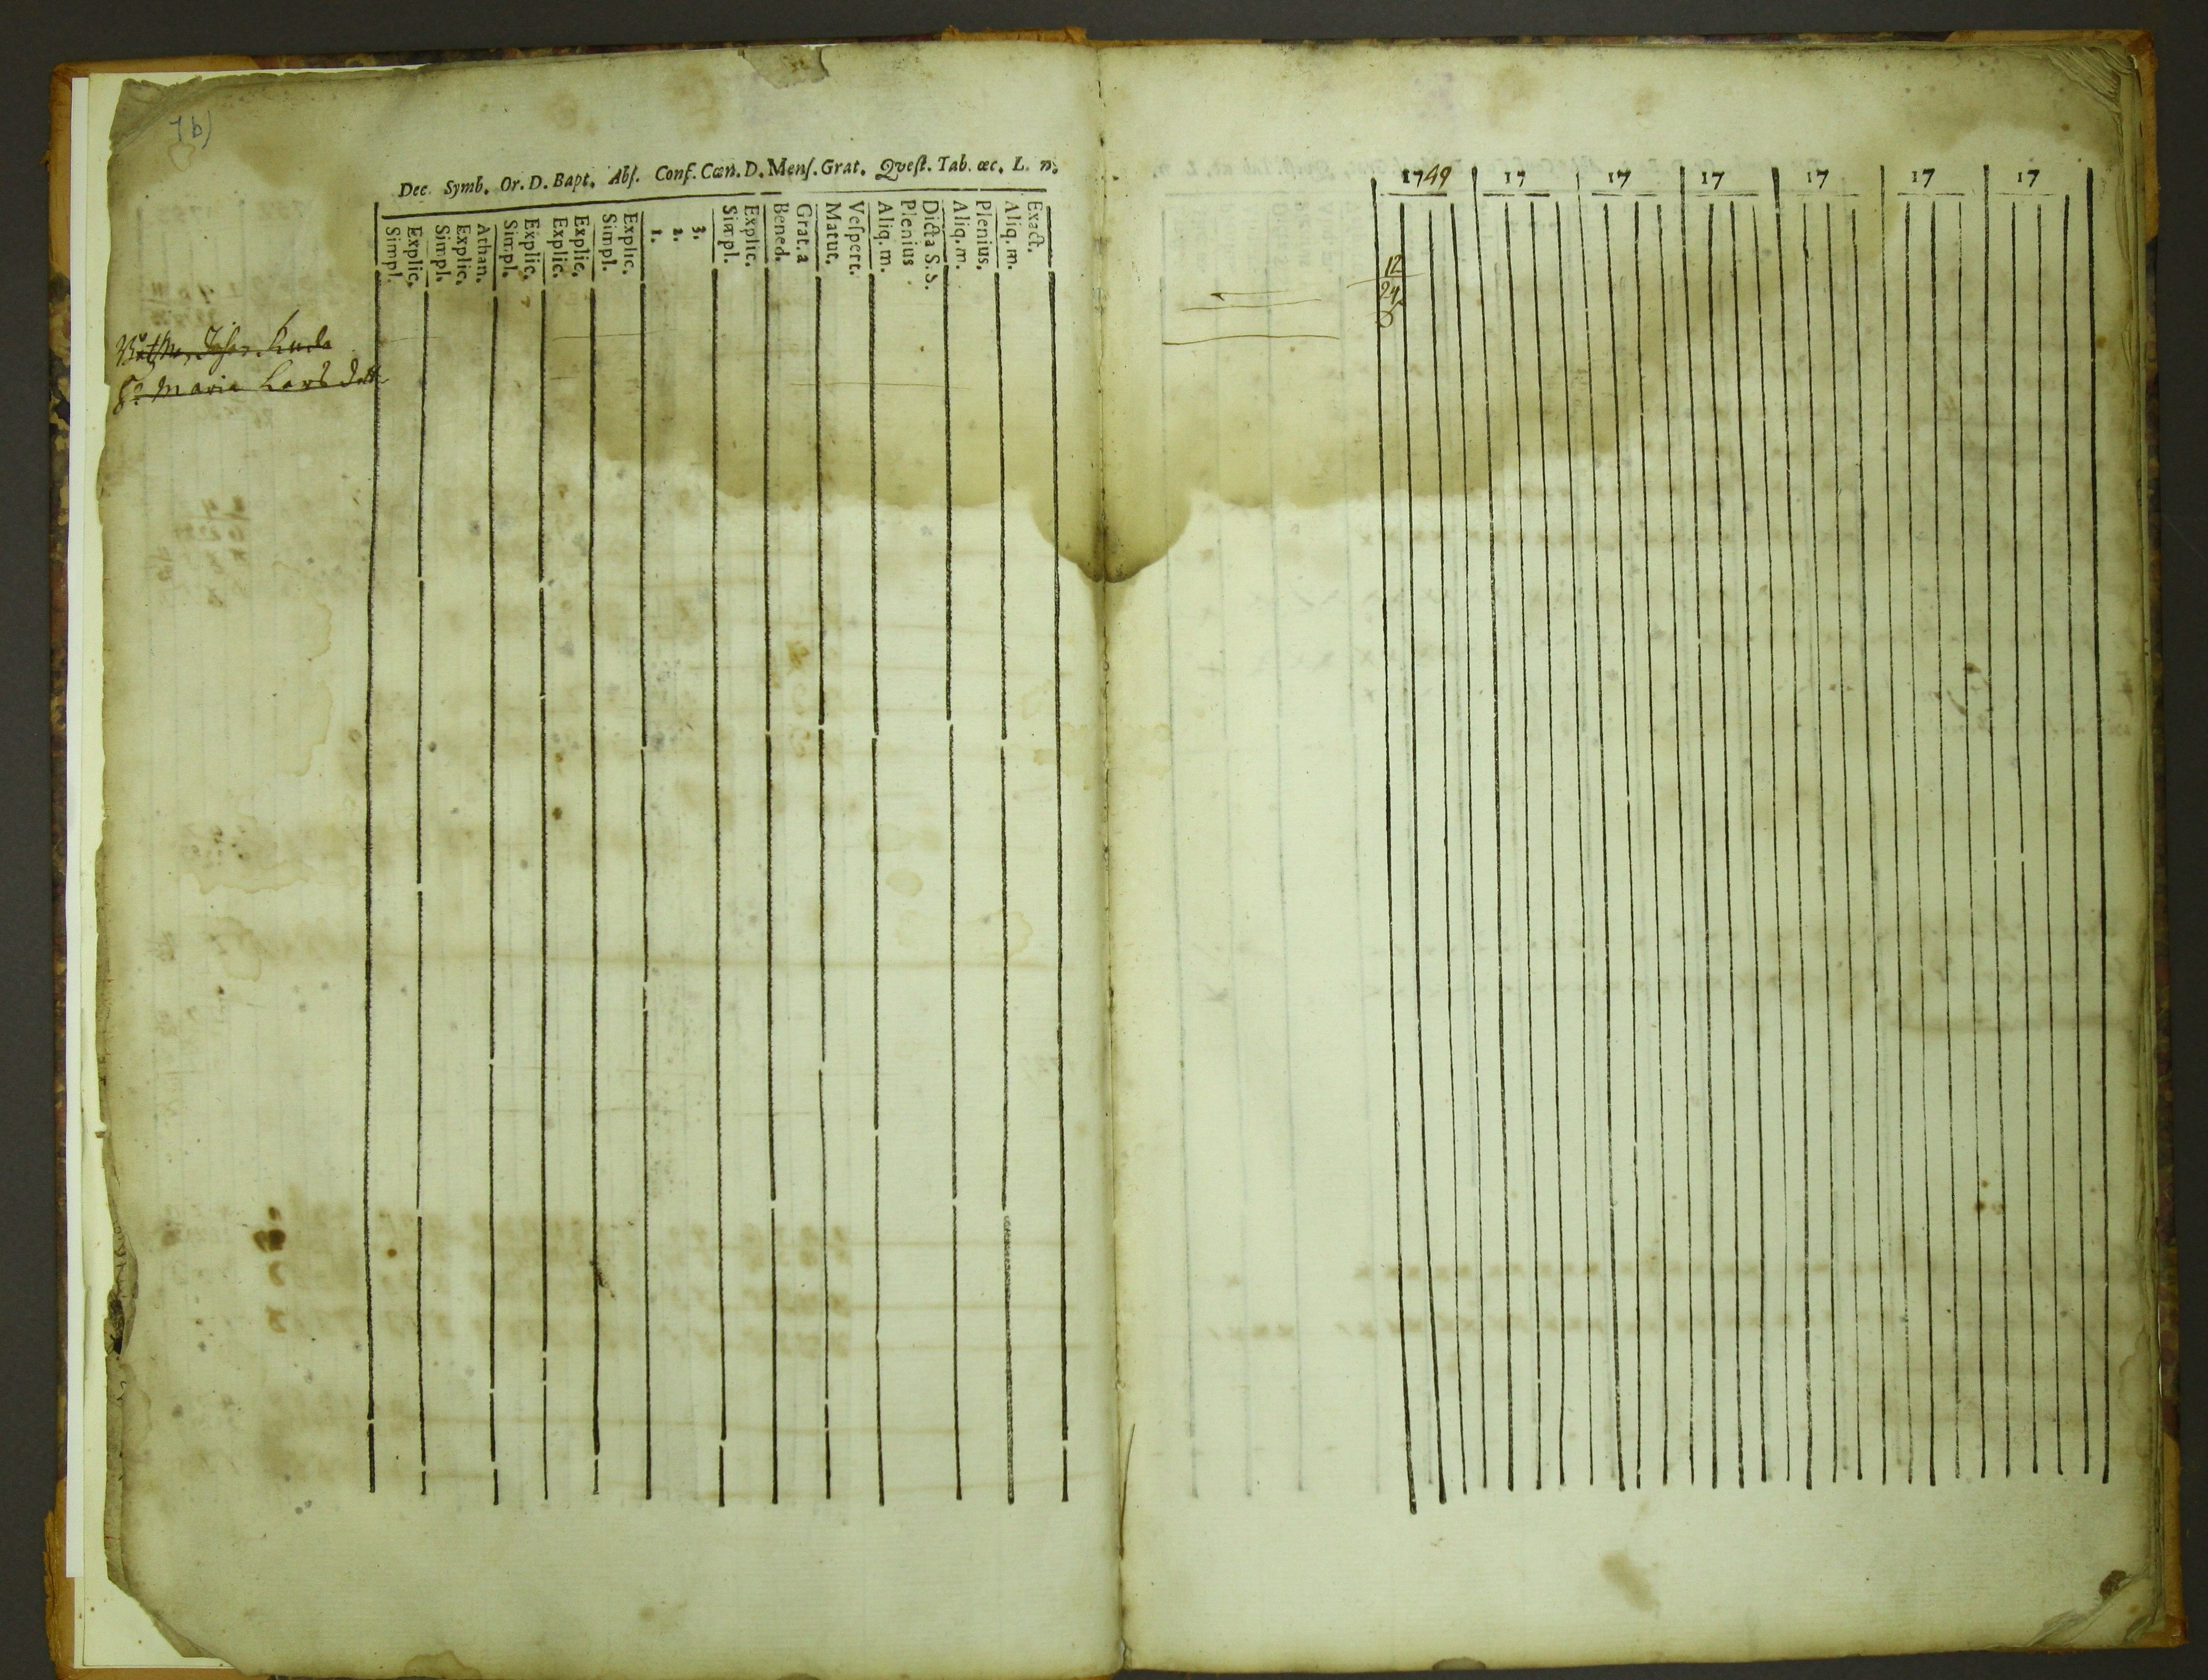 1b)
Dec. Symb. Or. D. Bapt. Abſ. Conf. Cœn. D. Menſ. Grat. Qveſt. Tab. œc. L. n.
Simpl.
Explic.
Simpl.
Explic.
Athan.
Simpl.
Explic.
Explic.
Explic.
Simpl.
Explic.
1.
2.
3.
Simpl.
Explic.
Bened.
Grat. a
Matut.
Veſpert.
Aliq. m.
Plenius
Dicta S. S.
Aliq. m.
Plenius.
Aliq. m.
Exact.
Maria Lars dott
1749 17 17 17 17 17 17
12
24